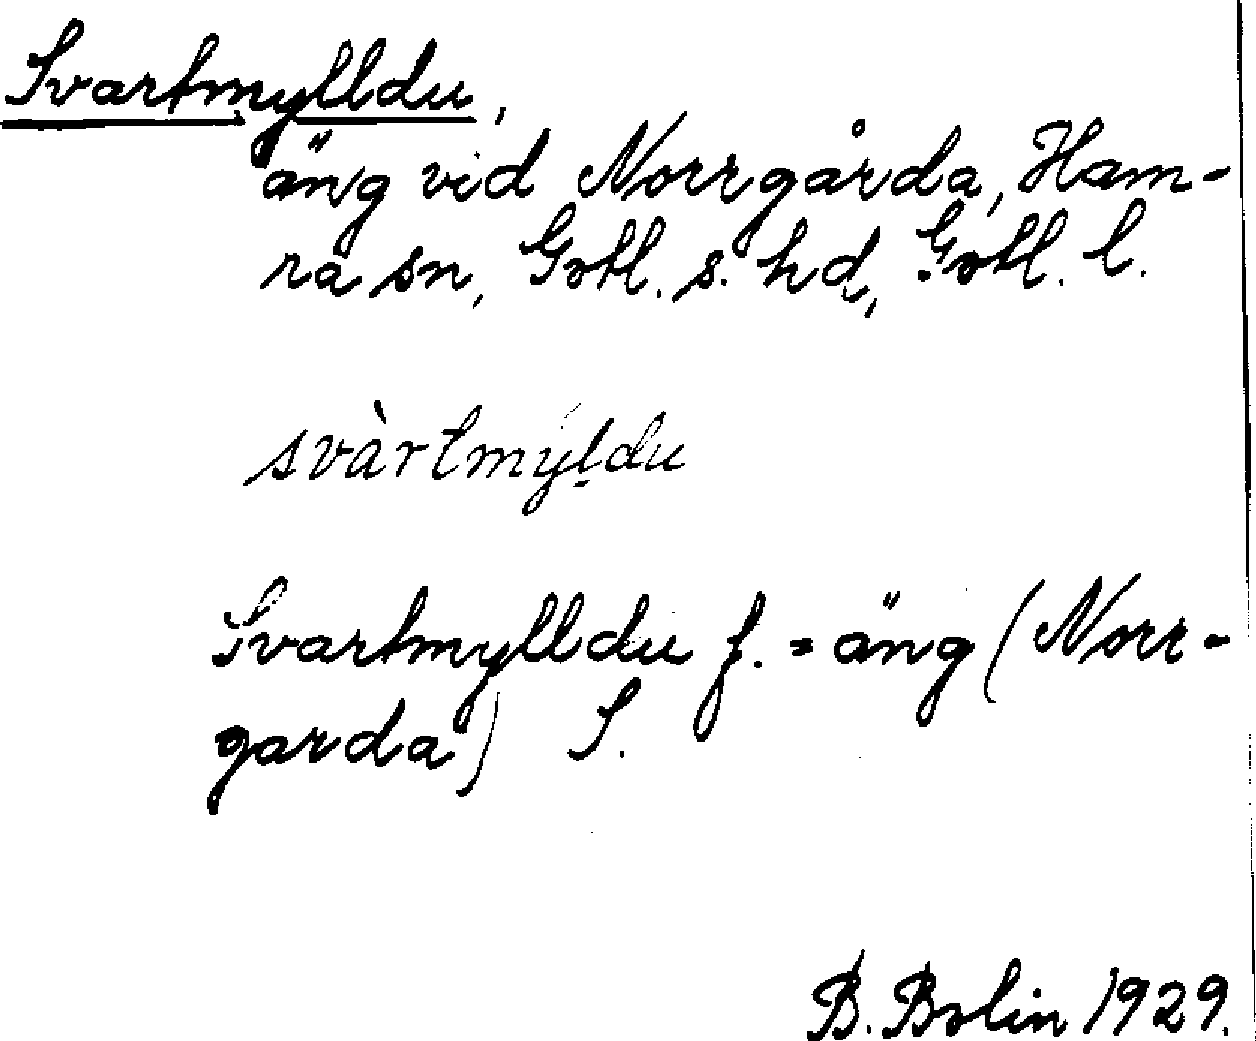 Svartmylldu,
äng vid Norrgårda, Ham-
ra sn, Gotl. s. hd, Gotl. l.
svàrtmýḷdu
Svartmylldu f. = äng (Norr-
garda) S.
B. Bolin 1929.